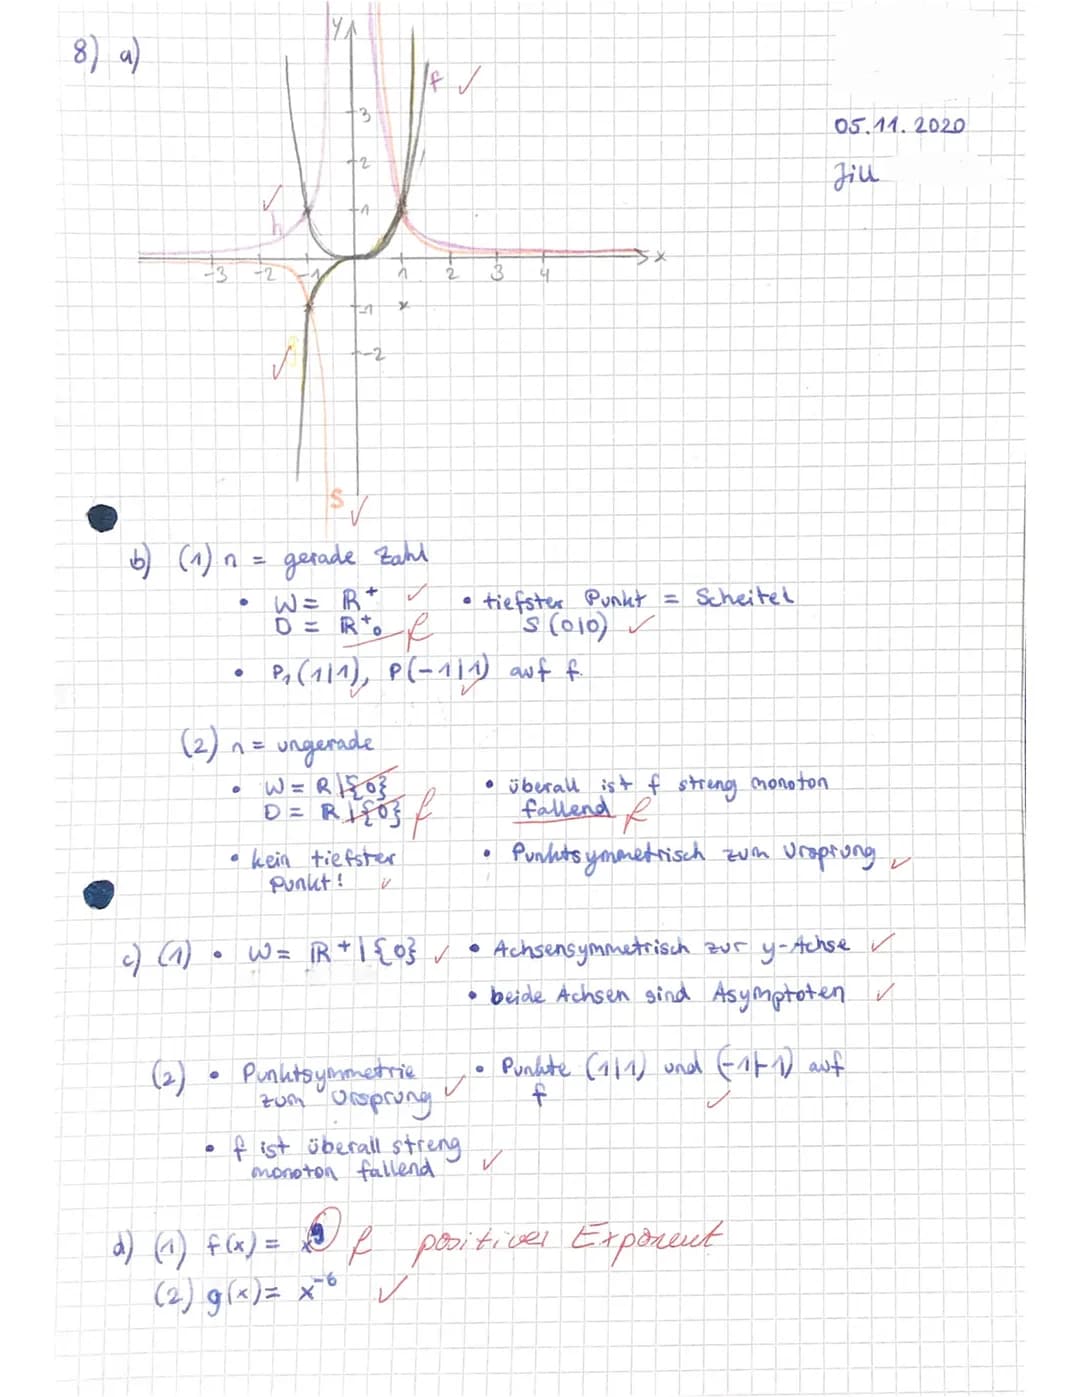 8) a)
y
f
3
05.11.2020
2
Jill
1
h
x
-3 -2 -1 1 2 3 4
-1
-2
S
b) (1) n = gerade Zahl
• W = ℝ⁺ • tiefster Punkt = Scheitel
D = ℝ⁺₀ f S (0|0)
• P₁(1|1), P(-1|1) auf f.
(2) n = ungerade
• W = R|{0} • überall ist f streng monoton
D = R|{0} f fallend f
• kein tiefster • Punktsymmetrisch zum Ursprung
Punkt!
c) (1) • W = ℝ⁺|{0} • Achsensymmetrisch zur y-Achse
• beide Achsen sind Asymptoten
(2) • Punktsymmetrie • Punkte (1|1) und (-1|-1) auf
zum Ursprung f
• f ist überall streng
monoton fallend
d) (1) f(x) = x⁹ f positiver Exponent
(2) g(x) = x⁻⁶